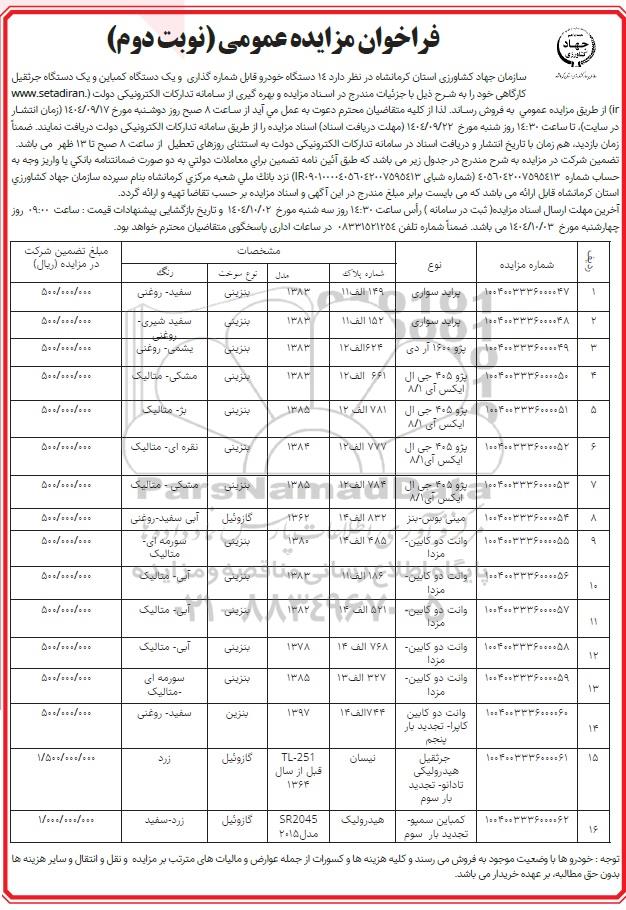 جهاد کشاورزی
فراخوان مزایده عمومی (نوبت دوم)
سازمان جهاد کشاورزی استان کرمانشاه در نظر دارد ۱۴ دستگاه خودرو قابل شماره گذاری و یک دستگاه کمباین و یک دستگاه جرثقیل
کارگاهی خود را به شرح ذیل با جزئیات مندرج در اسناد مزایده و بهره گیری از سامانه تدارکات الکترونیکی دولت (www.setadiran.
ir) از طریق مزایده عمومی به فروش رساند. لذا از کلیه متقاضیان محترم دعوت به عمل می آید از ساعت ۸ صبح روز دوشنبه مورخ ۱۴۰۴/۰۹/۱۷ (زمان انتشار
در سایت)، تا ساعت ۱۴:۳۰ روز شنبه مورخ ۱۴۰۴/۰۹/۲۲ (مهلت دریافت اسناد) اسناد مزایده را از طریق سامانه تدارکات الکترونیکی دولت دریافت نمایند. ضمناً
زمان بازدید، هم زمان با تاریخ انتشار و دریافت اسناد در سامانه تدارکات الکترونیکی دولت به استثنای روزهای تعطیل از ساعت ۸ صبح تا ۱۳ ظهر می باشد.
تضمین شرکت در مزایده به شرح مندرج در جدول زیر می باشد که طبق آئین نامه تضمین برای معاملات دولتی به دو صورت ضمانتنامه بانکی یا واریز وجه به
حساب شماره ۴۰۵۶۰۴۲۰۰۷۵۹۵۴۱۳ (شماره شبای IR۰۹۰۱۰۰۰۰۴۰۵۶۰۴۲۰۰۷۵۹۵۴۱۳) نزد بانک ملی شعبه مرکزی کرمانشاه بنام سپرده سازمان جهاد کشاورزی
استان کرمانشاه قابل ارائه می باشد که می بایست برابر مبلغ مندرج در این آگهی و اسناد مزایده بر حسب تقاضا تهیه و ارائه گردد.
آخرین مهلت ارسال اسناد مزایده( ثبت در سامانه ) رأس ساعت ۱۴:۳۰ روز سه شنبه مورخ ۱۴۰۴/۱۰/۰۲ و تاریخ بازگشایی پیشنهادات قیمت : ساعت ۰۹:۰۰ روز
چهارشنبه مورخ ۱۴۰۴/۱۰/۰۳ می باشد. ضمناً شماره تلفن ۰۸۳۳۱۵۲۱۲۵۴ در ساعات اداری پاسخگوی متقاضیان محترم خواهد بود.
ردیف شماره مزایده نوع مشخصات مبلغ تضمین شرکت در مزایده (ریال)
شماره پلاک مدل نوع سوخت رنگ
۱ ۱۰۰۴۰۰۳۳۳۶۰۰۰۰۴۷ پراید سواری ۱۴۹ الف۱۱ ۱۳۸۳ بنزینی سفید- روغنی ۵۰۰/۰۰۰/۰۰۰
۲ ۱۰۰۴۰۰۳۳۳۶۰۰۰۰۴۸ پراید سواری ۱۵۲ الف۱۱ ۱۳۸۳ بنزینی سفید شیری- روغنی ۵۰۰/۰۰۰/۰۰۰
۳ ۱۰۰۴۰۰۳۳۳۶۰۰۰۰۴۹ پژو ۱۶۰۰ آر دی ۶۲۴الف۱۲ ۱۳۸۳ بنزینی یشمی- روغنی ۵۰۰/۰۰۰/۰۰۰
۴ ۱۰۰۴۰۰۳۳۳۶۰۰۰۰۵۰ پژو ۴۰۵ جی ال ایکس آی ۸/۱ ۶۶۱ الف۱۲ ۱۳۸۳ بنزینی مشکی- متالیک ۵۰۰/۰۰۰/۰۰۰
۵ ۱۰۰۴۰۰۳۳۳۶۰۰۰۰۵۱ پژو ۴۰۵ جی ال ایکس آی ۸/۱ ۷۸۱ الف ۱۲ ۱۳۸۵ بنزینی بژ- متالیک ۵۰۰/۰۰۰/۰۰۰
۶ ۱۰۰۴۰۰۳۳۳۶۰۰۰۰۵۲ پژو ۴۰۵ جی ال ایکس آی۸/۱ ۷۷۷ الف۱۲ ۱۳۸۴ بنزینی نقره ای- متالیک ۵۰۰/۰۰۰/۰۰۰
۷ ۱۰۰۴۰۰۳۳۳۶۰۰۰۰۵۳ پژو ۴۰۵ جی ال ایکس آی۸/۱ ۷۸۴ الف۱۲ ۱۳۸۵ بنزینی مشکی - متالیک ۵۰۰/۰۰۰/۰۰۰
۸ ۱۰۰۴۰۰۳۳۳۶۰۰۰۰۵۴ مینی بوس-بنز ۸۳۲ الف۱۴ ۱۳۶۲ گازوئیل آبی سفید-روغنی ۵۰۰/۰۰۰/۰۰۰
۹ ۱۰۰۴۰۰۳۳۳۶۰۰۰۰۵۵ وانت دو کابین- مزدا ۴۸۵ الف۱۴ ۱۳۸۰ بنزینی سورمه ای- متالیک ۵۰۰/۰۰۰/۰۰۰
۱۰ ۱۰۰۴۰۰۳۳۳۶۰۰۰۰۵۶ وانت دو کابین- مزدا ۱۸۶ الف۱۱ ۱۳۸۳ بنزینی آبی- متالیک ۵۰۰/۰۰۰/۰۰۰
۱۱ ۱۰۰۴۰۰۳۳۳۶۰۰۰۰۵۷ وانت دو کابین- مزدا ۵۲۱ الف ۱۴ ۱۳۸۲ بنزینی آبی- متالیک ۵۰۰/۰۰۰/۰۰۰
۱۲ ۱۰۰۴۰۰۳۳۳۶۰۰۰۰۵۸ وانت دو کابین- مزدا ۷۶۸ الف ۱۴ ۱۳۷۸ بنزینی آبی- متالیک ۵۰۰/۰۰۰/۰۰۰
۱۳ ۱۰۰۴۰۰۳۳۳۶۰۰۰۰۵۹ وانت دو کابین- مزدا ۳۲۷ الف۱۳ ۱۳۸۵ بنزینی سورمه ای -متالیک ۵۰۰/۰۰۰/۰۰۰
۱۴ ۱۰۰۴۰۰۳۳۳۶۰۰۰۰۶۰ وانت دو کابین کاپرا- تجدید بار پنجم ۷۴۴الف۱۴ ۱۳۹۷ بنزین سفید- روغنی ۵۰۰/۰۰۰/۰۰۰
۱۵ ۱۰۰۴۰۰۳۳۳۶۰۰۰۰۶۱ جرثقیل هیدرولیکی تادانو- تجدید بار سوم نیسان TL-251 قبل از سال ۱۳۶۴ گازوئیل زرد ۱/۵۰۰/۰۰۰/۰۰۰
۱۶ ۱۰۰۴۰۰۳۳۳۶۰۰۰۰۶۲ کمباین سمپو- تجدید بار سوم هیدرولیک SR2045 مدل۲۰۱۵ گازوئیل زرد-سفید ۱/۰۰۰/۰۰۰/۰۰۰
توجه : خودرو ها با وضعیت موجود به فروش می رسند و کلیه هزینه ها و کسورات از جمله عوارض و مالیات های مترتب بر مزایده و نقل و انتقال و سایر هزینه ها
بدون حق مطالبه، بر عهده خریدار می باشد.
ParsNamadData
پایگاه اطلاع رسانی مناقصه و مزایده
۰۲۱-۸۸۳۴۹۶۷۰